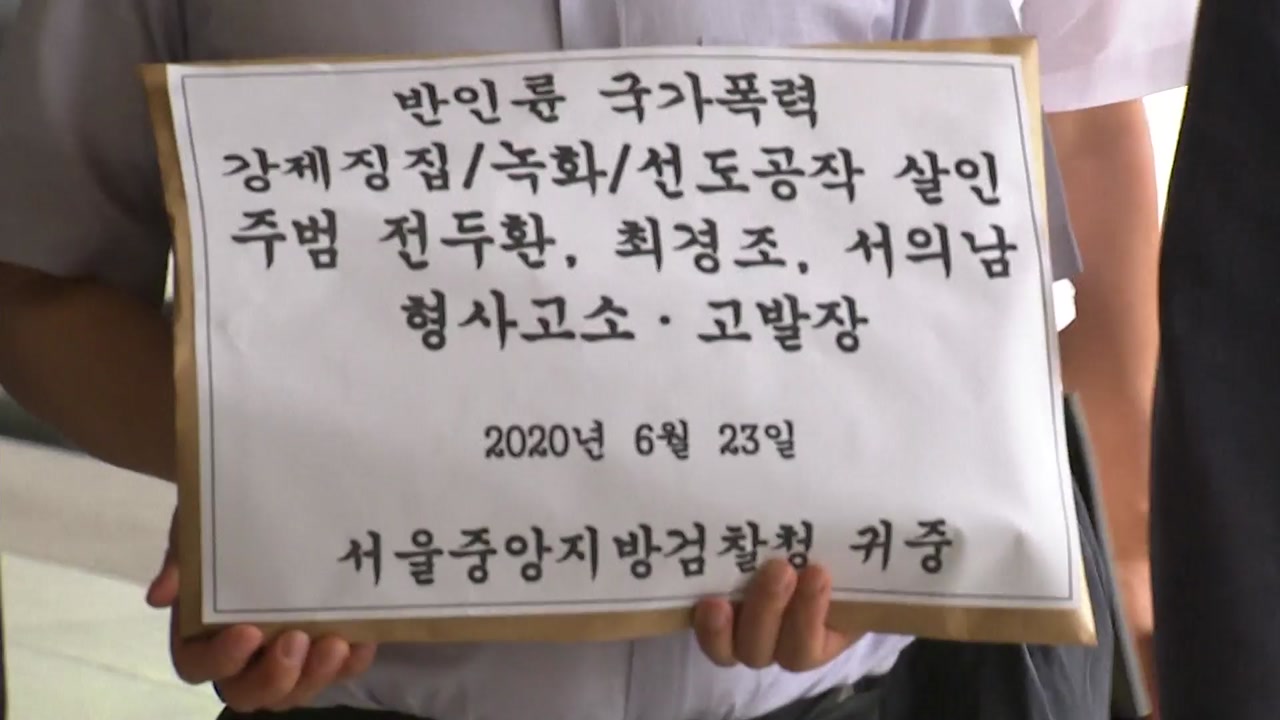 반인륜 국가폭력
강제징집/녹화/선도공작 살인
주범 전두환, 최경조, 서의남
형사고소 · 고발장
2020년 6월 23일
서울중앙지방검찰청 귀중